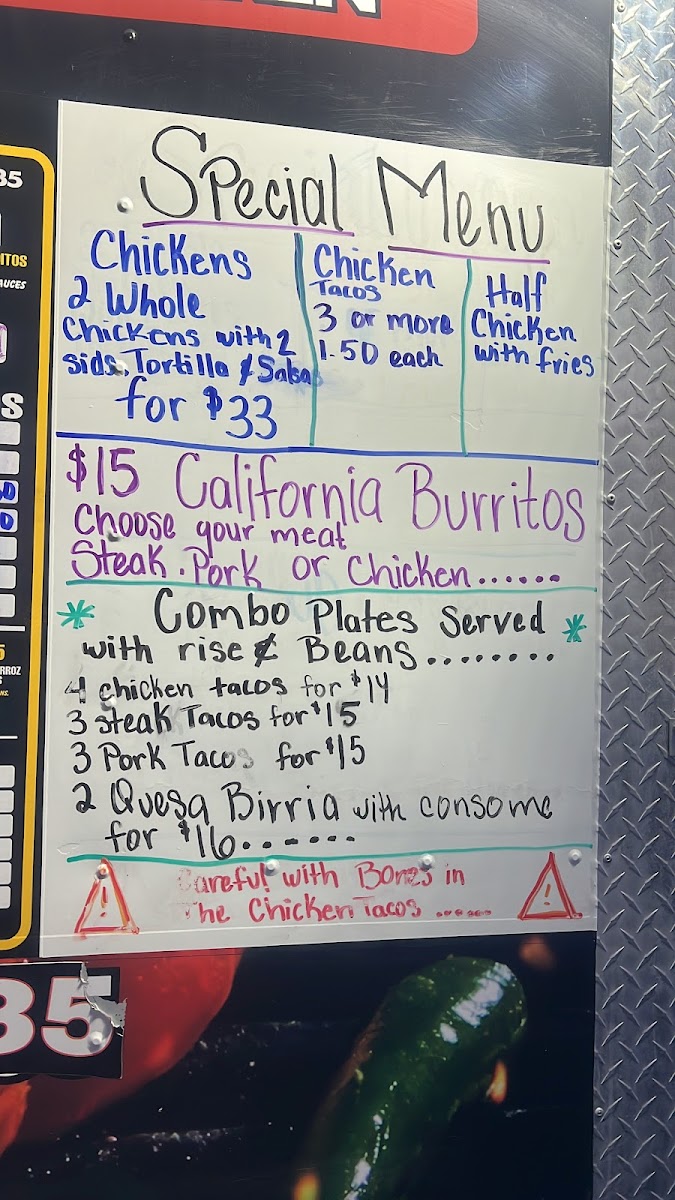 Special Menu
Chickens
2 Whole
Chickens with 2
sids. Tortilla & Salsa
for $33
Chicken
Tacos
3 or more
1.50 each
Half
Chicken
with fries
$15 California Burritos
Choose your meat
Steak. Pork or Chicken......
Combo Plates Served
with rise & Beans........
4 chicken tacos for $14
3 steak Tacos for $15
3 Pork Tacos for $15
2 Quesa Birria with consome
for $16.......
Careful with Bones in
The Chicken Tacos ......
35
ITOS
AUCES
S
0
0
5
RROZ
S
NS.
35